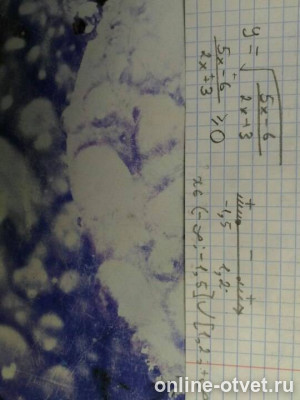 y = √(5x-6 / 2x+3)
5x-6 / 2x+3 ≥ 0
+ - +
-1,5 1,2
x ∈ (-∞; -1,5] ∪ [1,2; +
online-otvet.ru